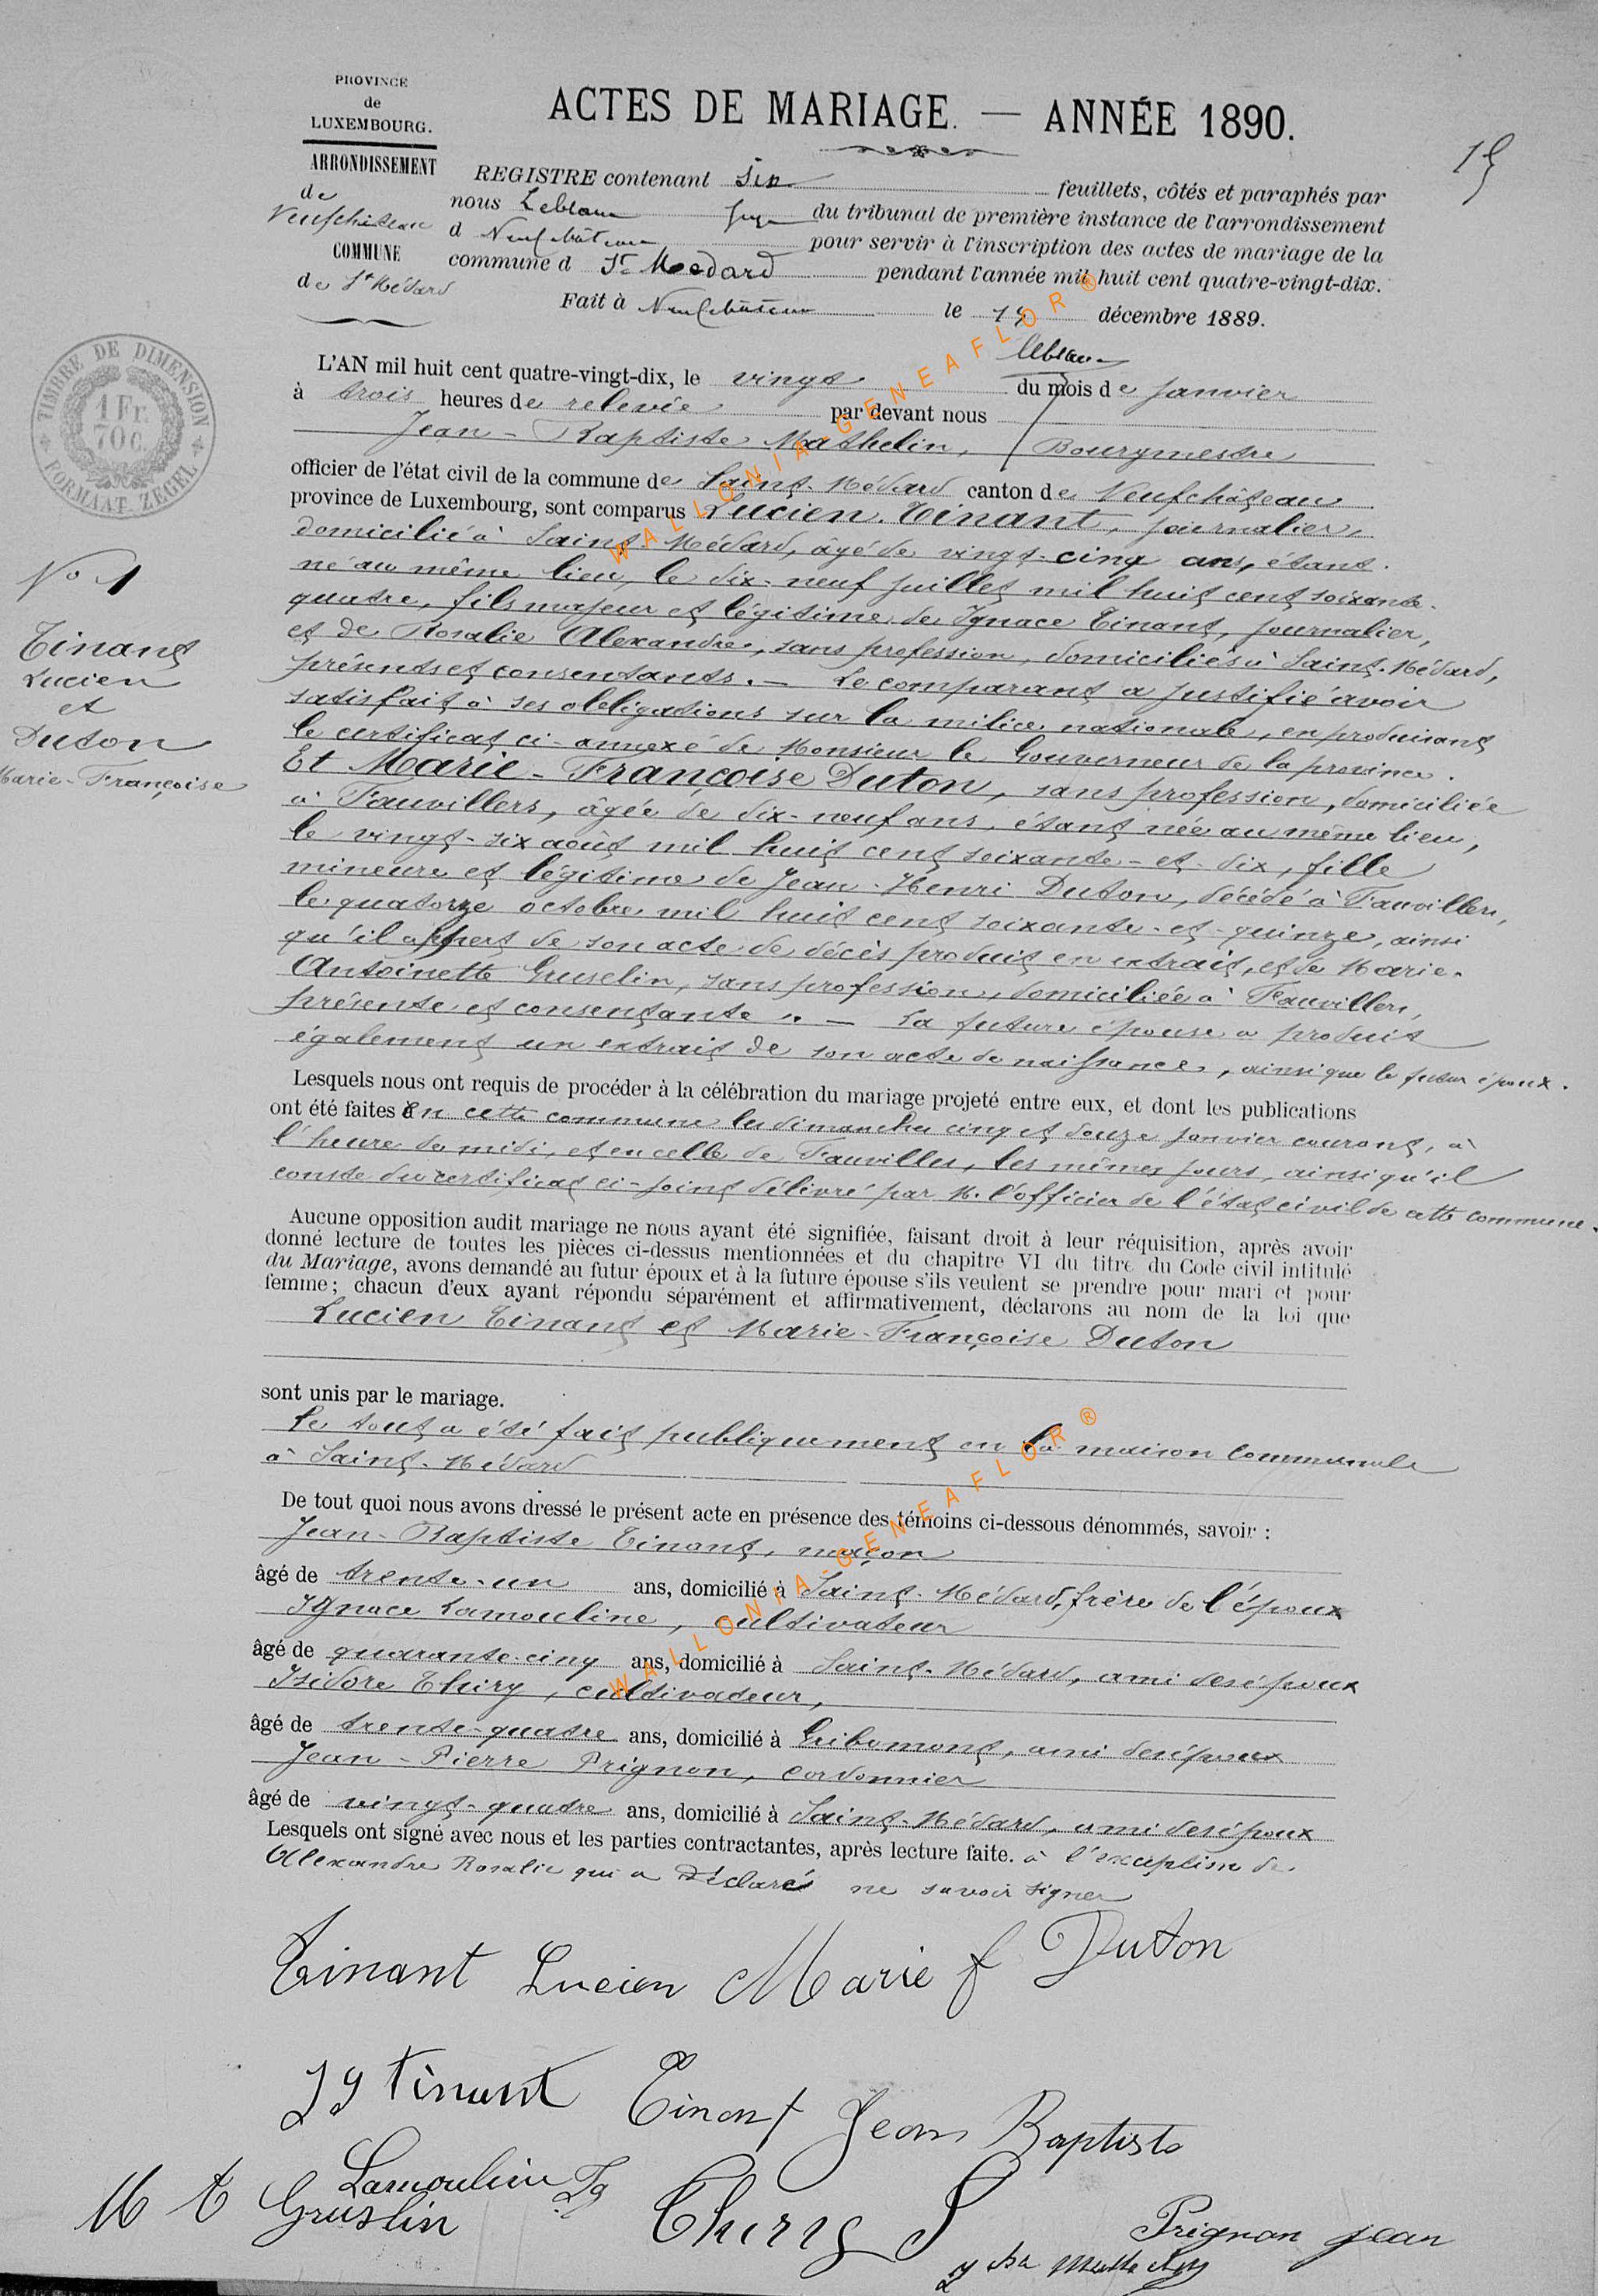 PROVINCE
de
LUXEMBOURG.
ARRONDISSEMENT
de
Neufchâteau
COMMUNE
de St Médard
ACTES DE MARIAGE. — ANNÉE 1890.
15
REGISTRE contenant six feuillets, côtés et paraphés par
nous Leblanc Juge du tribunal de première instance de l'arrondissement
d Neufchâteau pour servir à l'inscription des actes de mariage de la
commune d St Medard pendant l'année mil huit cent quatre-vingt-dix.
Fait à Neufchâteau le 15 décembre 1889.
Leblanc
TIMBRE DE DIMENSION
1 Fr.
70 C.
FORMAAT ZEGEL
L'AN mil huit cent quatre-vingt-dix, le vingt du mois de Janvier
à trois heures de relevée par devant nous
Jean-Baptiste Mathelin, Bourgmestre
officier de l'état civil de la commune de Saint-Médard canton de Neufchâteau
province de Luxembourg, sont comparus Lucien Tinant, journalier,
domicilié à Saint-Médard, âgé de vingt-cinq ans, étant
né au même lieu, le dix-neuf juillet mil huit cent soixante-
quatre, fils majeur et légitime de Ignace Tinant, journalier,
et de Rosalie Alexandre, sans profession, domiciliés à Saint-Médard,
présents et consentants. — Le comparant a justifié avoir
satisfait à ses obligations sur la milice nationale, en produisant
le certificat ci-annexé de Monsieur le Gouverneur de la province.
Et Marie-Françoise Duton, sans profession, domiciliée
à Fauvillers, âgée de dix-neuf ans, étant née au même lieu,
le vingt-six août mil huit cent soixante-et-dix, fille
mineure et légitime de Jean-Henri Duton, décédé à Fauvillers,
le quatorze octobre mil huit cent soixante-et-quinze, ainsi
qu'il appert de son acte de décès produit en extrait, et de Marie-
Antoinette Gruselin, sans profession, domiciliée à Fauvillers,
présente et consentante. — La future épouse a produit
également un extrait de son acte de naissance, ainsi que le futur époux.
No 1
Tinant
Lucien
et
Duton
Marie-Françoise
Lesquels nous ont requis de procéder à la célébration du mariage projeté entre eux, et dont les publications
ont été faites en cette commune les dimanches cinq et douze janvier courant, à
l'heure de midi, et en celle de Fauvillers, les mêmes jours, ainsi qu'il
conste du certificat ci-joint délivré par M. l'officier de l'état civil de cette commune.
Aucune opposition audit mariage ne nous ayant été signifiée, faisant droit à leur réquisition, après avoir
donné lecture de toutes les pièces ci-dessus mentionnées et du chapitre VI du titre du Code civil intitulé
du Mariage, avons demandé au futur époux et à la future épouse s'ils veulent se prendre pour mari et pour
femme; chacun d'eux ayant répondu séparément et affirmativement, déclarons au nom de la loi que
Lucien Tinant et Marie-Françoise Duton
sont unis par le mariage.
Le tout a été fait publiquement en la maison communale
à Saint-Médard
De tout quoi nous avons dressé le présent acte en présence des témoins ci-dessous dénommés, savoir :
Jean-Baptiste Tinant, maçon
âgé de trente-un ans, domicilié à Saint-Médard, frère de l'époux
Ignace Lamouline, cultivateur
âgé de quarante-cinq ans, domicilié à Saint-Médard, ami des époux
Isidore Thiry, cultivateur,
âgé de trente-quatre ans, domicilié à Gribomont, ami des époux
Jean-Pierre Prignon, cordonnier
âgé de vingt-quatre ans, domicilié à Saint-Médard, ami des époux
Lesquels ont signé avec nous et les parties contractantes, après lecture faite. à l'exception de
Alexandre Rosalie qui a déclaré ne savoir signer
Tinant Lucien Marie f Duton
Ig Tinant Tinant Jean Baptiste
Lamouline Ig
M t Gruslin Thiry
Prignon Jean
WALLONIA-GENEAFLOR ®
WALLONIA-GENEAFLOR ®